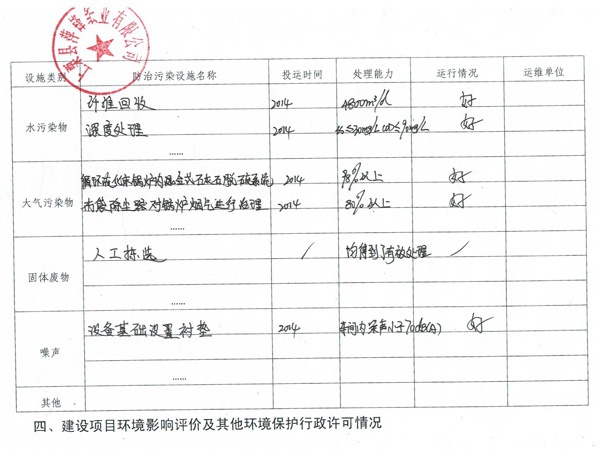 上栗县萍锋纸业有限公司
设施类别 防治污染设施名称 投运时间 处理能力 运行情况 运维单位
水污染物 纤维回收 2014 4800m³/d 好
深度处理 2014 SS≤30mg/L COD≤90mg/L 好
……
大气污染物 循环流化床锅炉 2014 90%以上 好
布袋除尘器对锅炉烟气进行治理 2014 80%以上 好
……
固体废物 人工拣选 / 均得到了有效处理 /
……
噪声 设备基础设置衬垫 2014 车间内噪声小于70dB(A) 好
……
其他
四、建设项目环境影响评价及其他环境保护行政许可情况